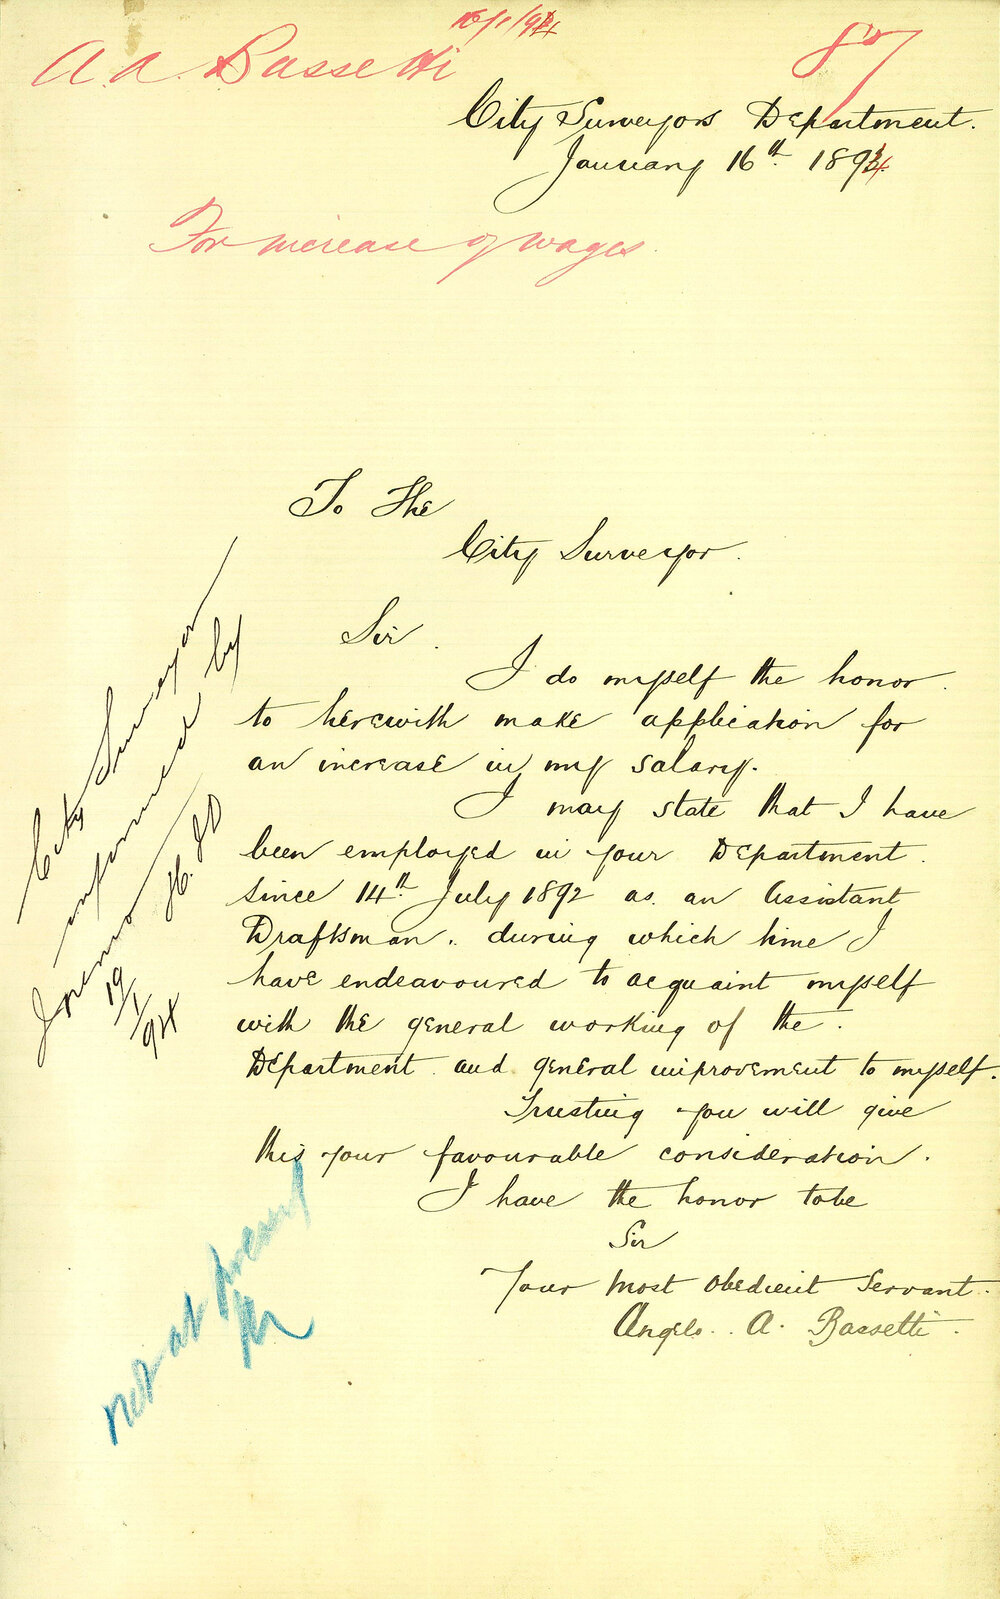 A. A. Bassetti
16/1/94
87
City Surveyors Department.
January 16th 1894
For increase of wages.
To The
City Surveyor.
Sir.
I do myself the honor
to herewith make application for
an increase in my salary.
I may state that I have
been employed in your Department.
since 14th July 1892 as. an Assistant
Draftsman. during which time I
have endeavoured to acquaint myself
with the general working of the.
Department. and general improvement to myself.
Trusting you will give
this your favourable consideration.
I have the honor tobe
Sir
Your Most Obedient Servant.
Angelo. A. Bassetti.
City Surveyor
informed by
19/1/94
Not at present